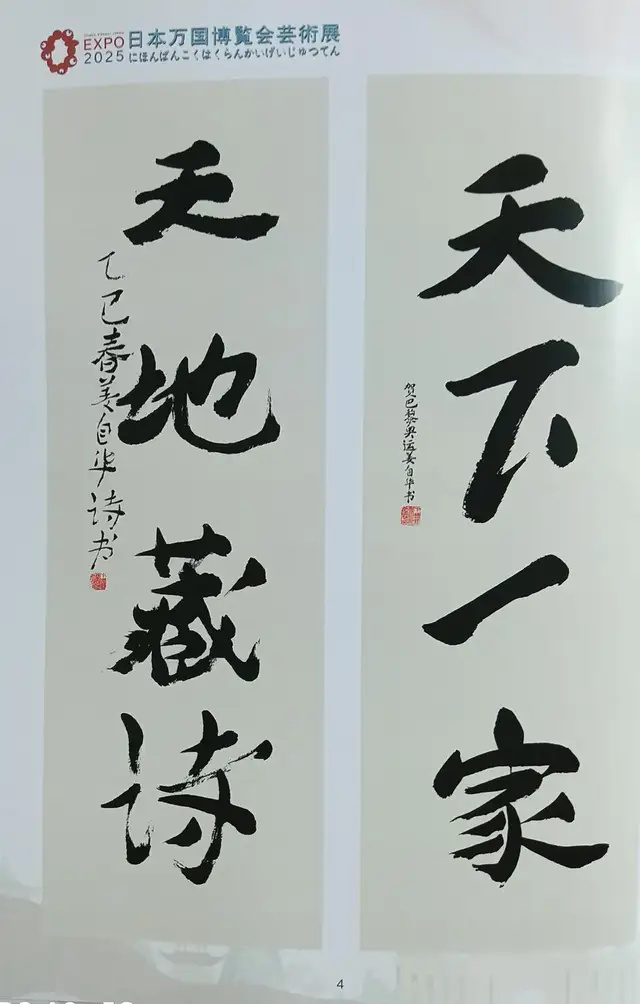 EXPO 2025
日本万国博覧会芸術展
にほんばんこくはくらんかいげいじゅつてん
天下一家
贺巴黎奥运姜自华书
天地藏诗
乙巳春姜自华诗书
4